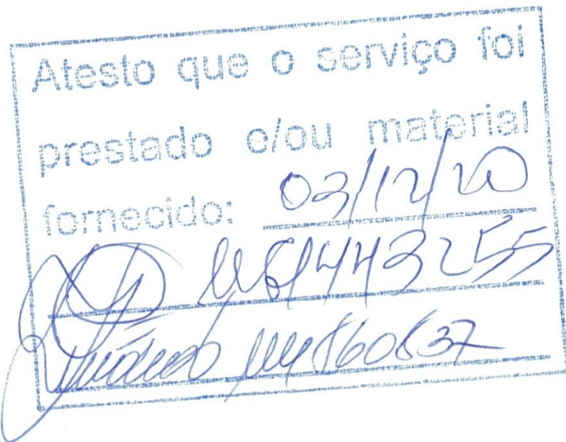 Atesto que o serviço foi
prestado e/ou material
fornecido: 03/12/20
1443255
860837